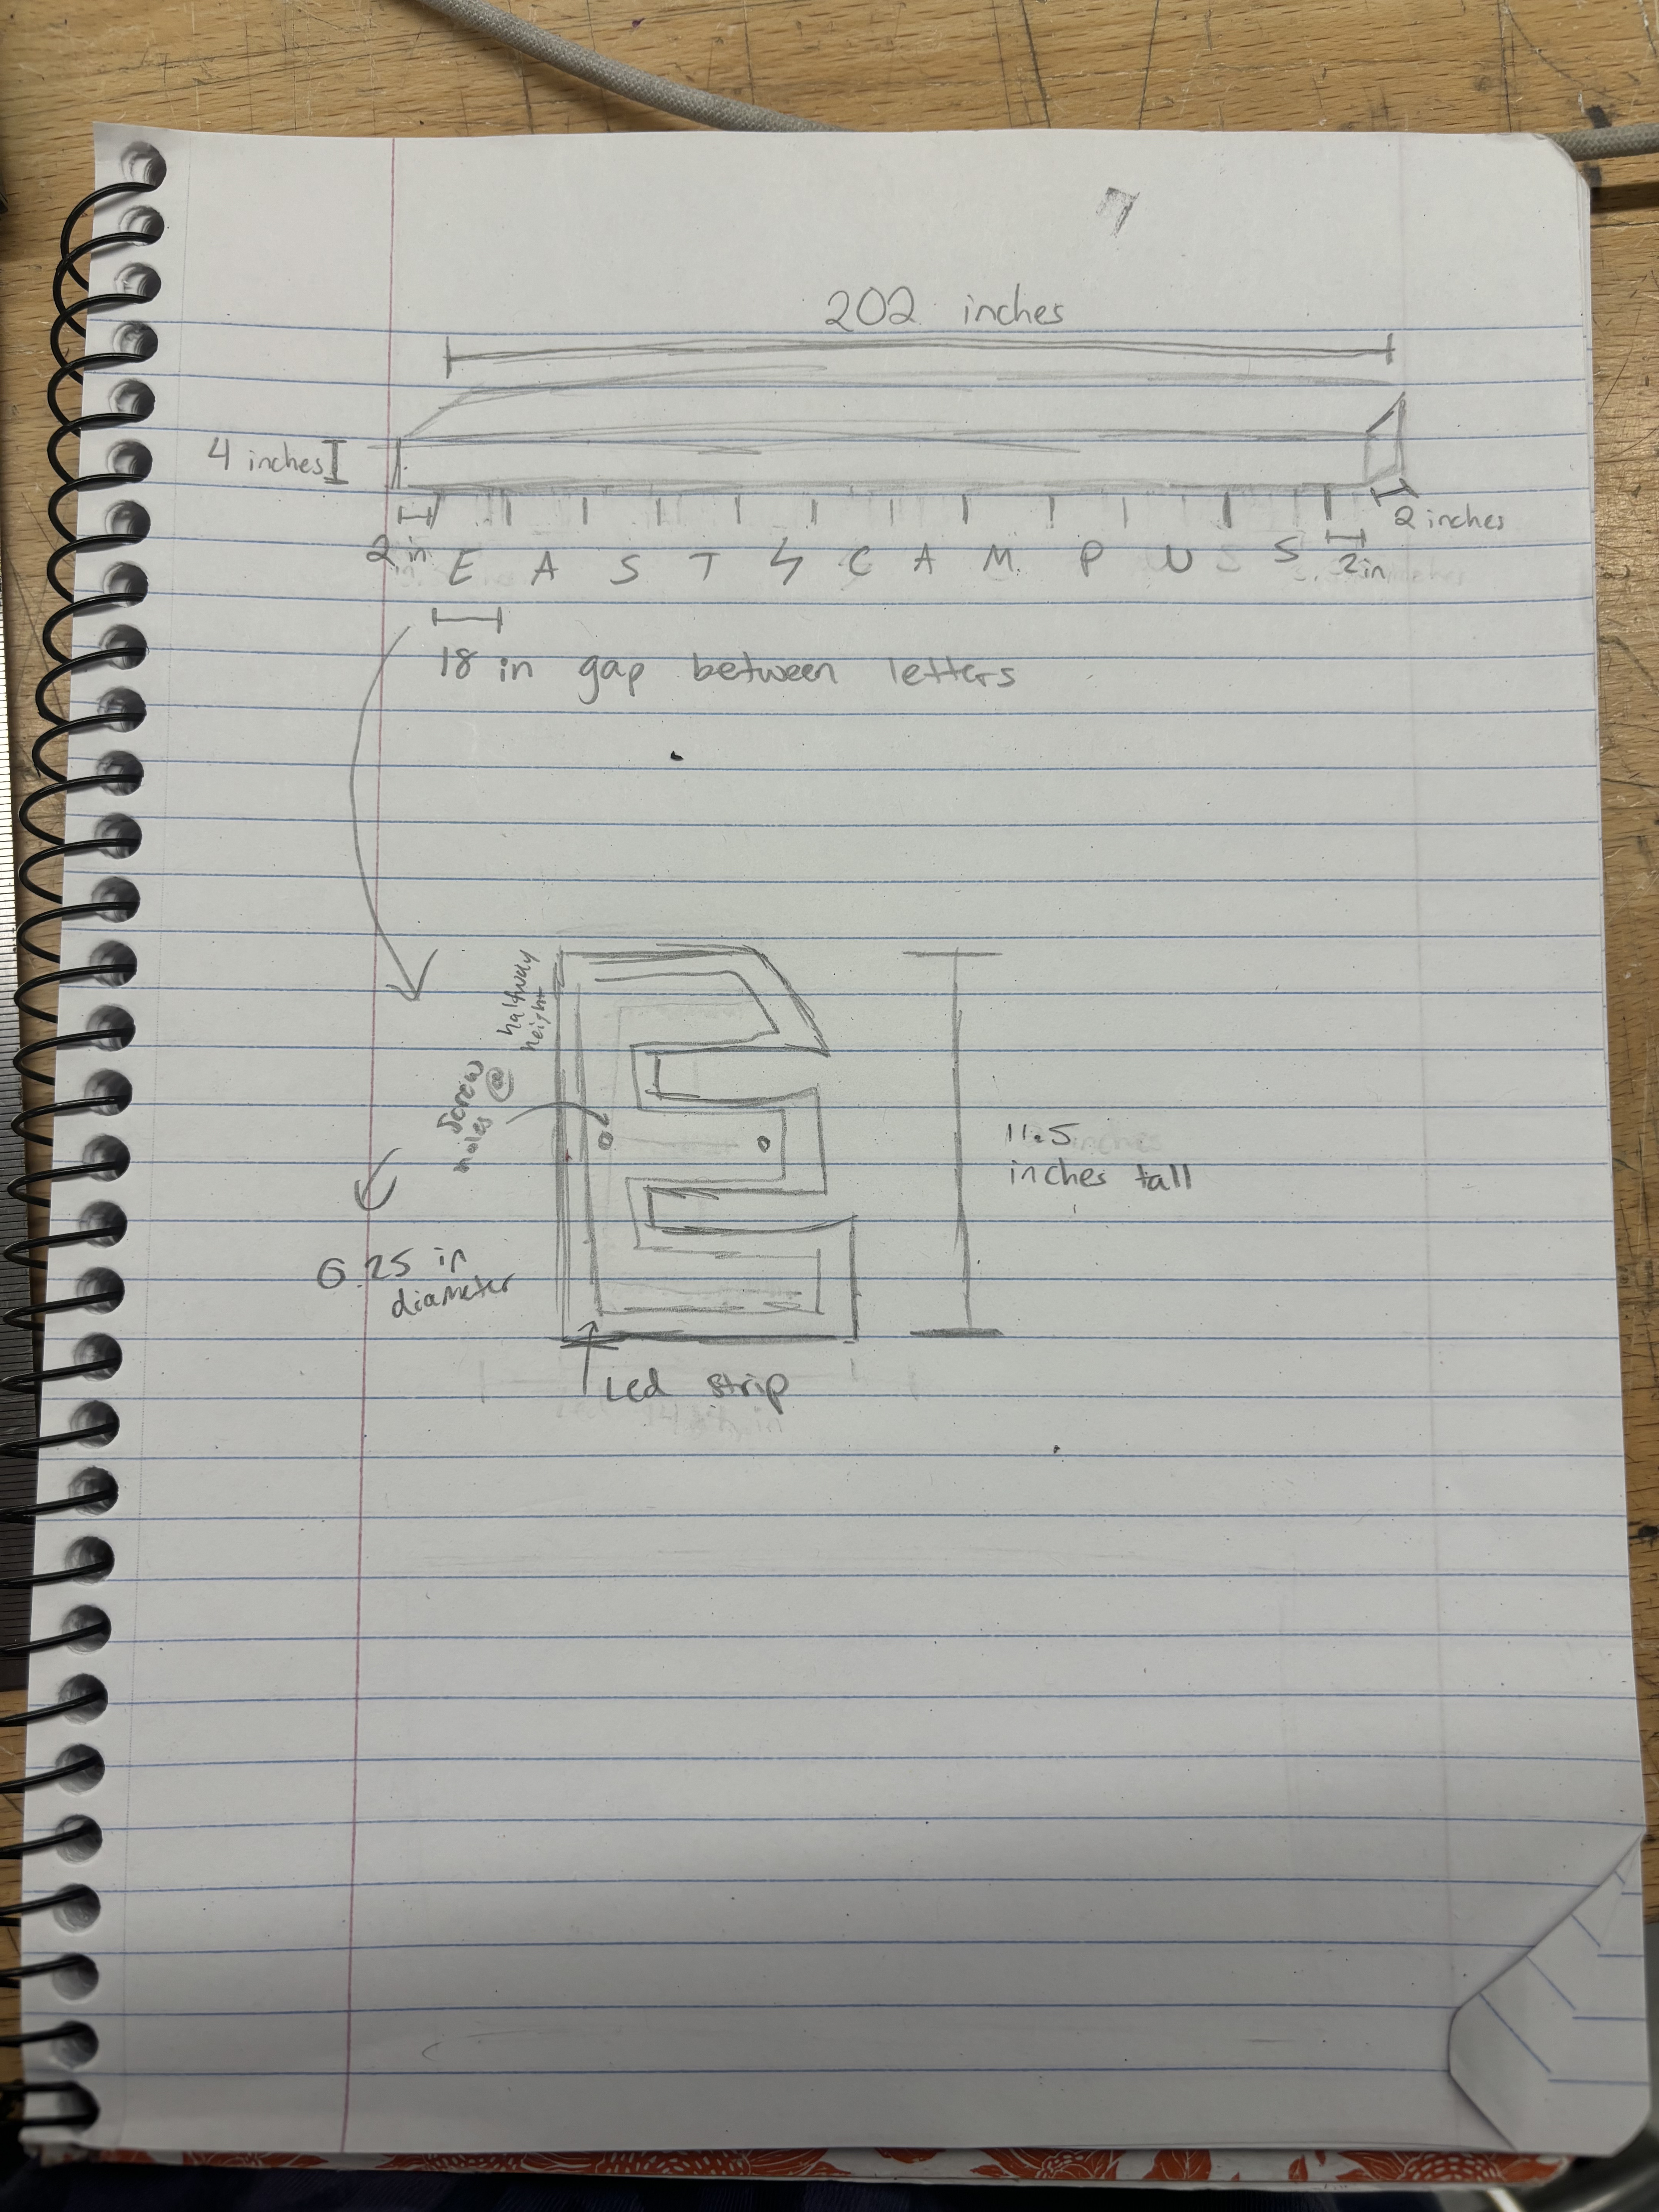 202 inches
4 inches
2 inches
2 in
E A S T ϟ C A M P U S
2in
18 in gap between letters
halfway
height
screw @
holes
11.5
inches tall
6.25 in
diameter
Led strip